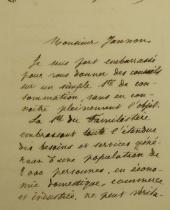 Monsieur Jannon,
Je suis fort embarrassé
pour vous donner des conseils
sur un simple Sté de con-
sommation, sans en con-
naître pleinement l'objet.
La Sté du Familistère
embrassant toute l'étendue
des besoins et services géné-
raux d'une population de
2 000 personnes, en écono-
mie domestique, commerce
et industrie, ne peut